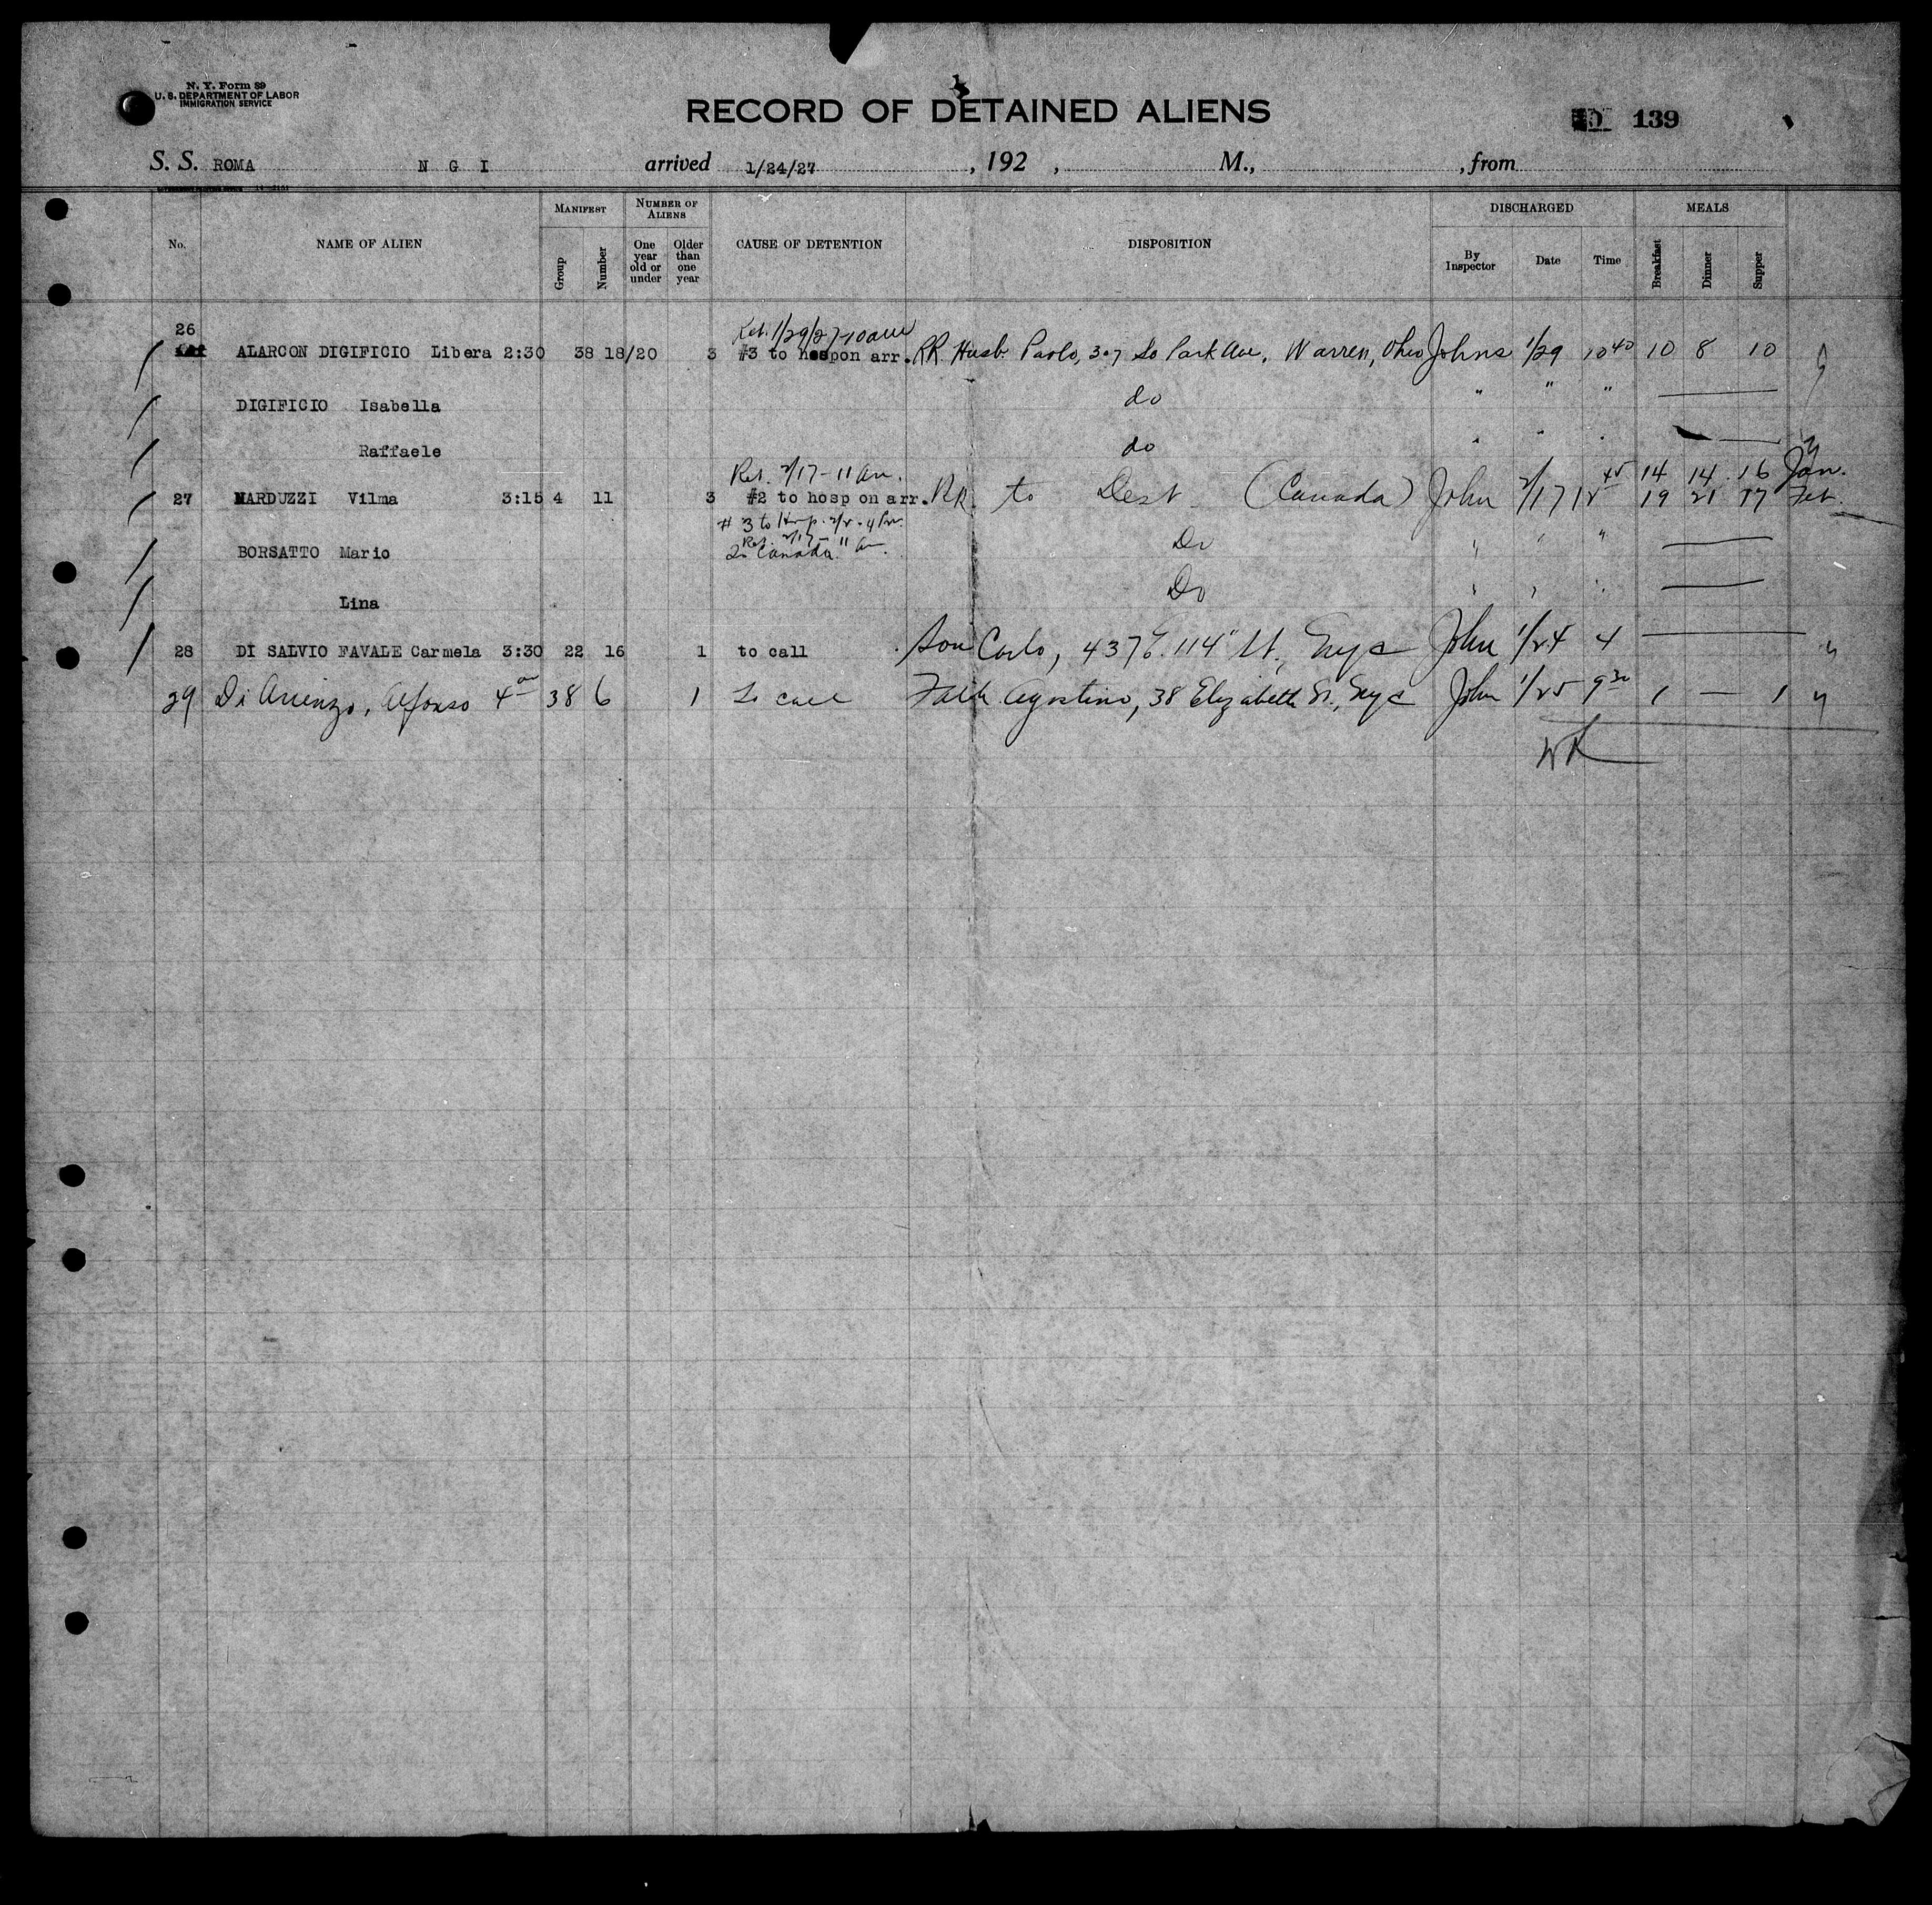 N. Y. Form 89
U. S. DEPARTMENT OF LABOR
IMMIGRATION SERVICE
RECORD OF DETAINED ALIENS
139
S. S. ROMA N G I arrived 1/24/27, 192 , M., , from
No. NAME OF ALIEN MANIFEST Group Number NUMBER OF ALIENS One year old or under Older than one year CAUSE OF DETENTION DISPOSITION DISCHARGED By Inspector Date Time MEALS Breakfast Dinner Supper
Ret. 1/29/27-10am
26 ALARCON DIGIFICIO Libera 2:30 38 18/20 3 #3 to hospon arr. RR Husb Paolo, 307 So Park Ave, Warren, Ohio Johns 1/29 10 40 10 8 10
DIGIFICIO Isabella do " " "
Raffaele do " " "
Ret. 2/17-11 am. 45 14 14 16 Jan.
27 MARDUZZI Vilma 3:15 4 11 3 #2 to hosp on arr. RR to Dest (Canada) John 2/17 12 19 21 17 Feb.
# 3 to Hosp. 2/2-4 Pm.
Ret. 2/17-11 am
BORSATTO Mario To Canada. Do " " "
Lina Do " " "
28 DI SALVIO FAVALE Carmela 3:30 22 16 1 to call Son Carlo, 437 E. 114" St., Nyc John 1/24 4
29 Di Arienzo, Alfonso 4 38 6 1 To call Fath Agostino, 38 Elizabeth St., Nyc John 1/25 9 30 1 — 1